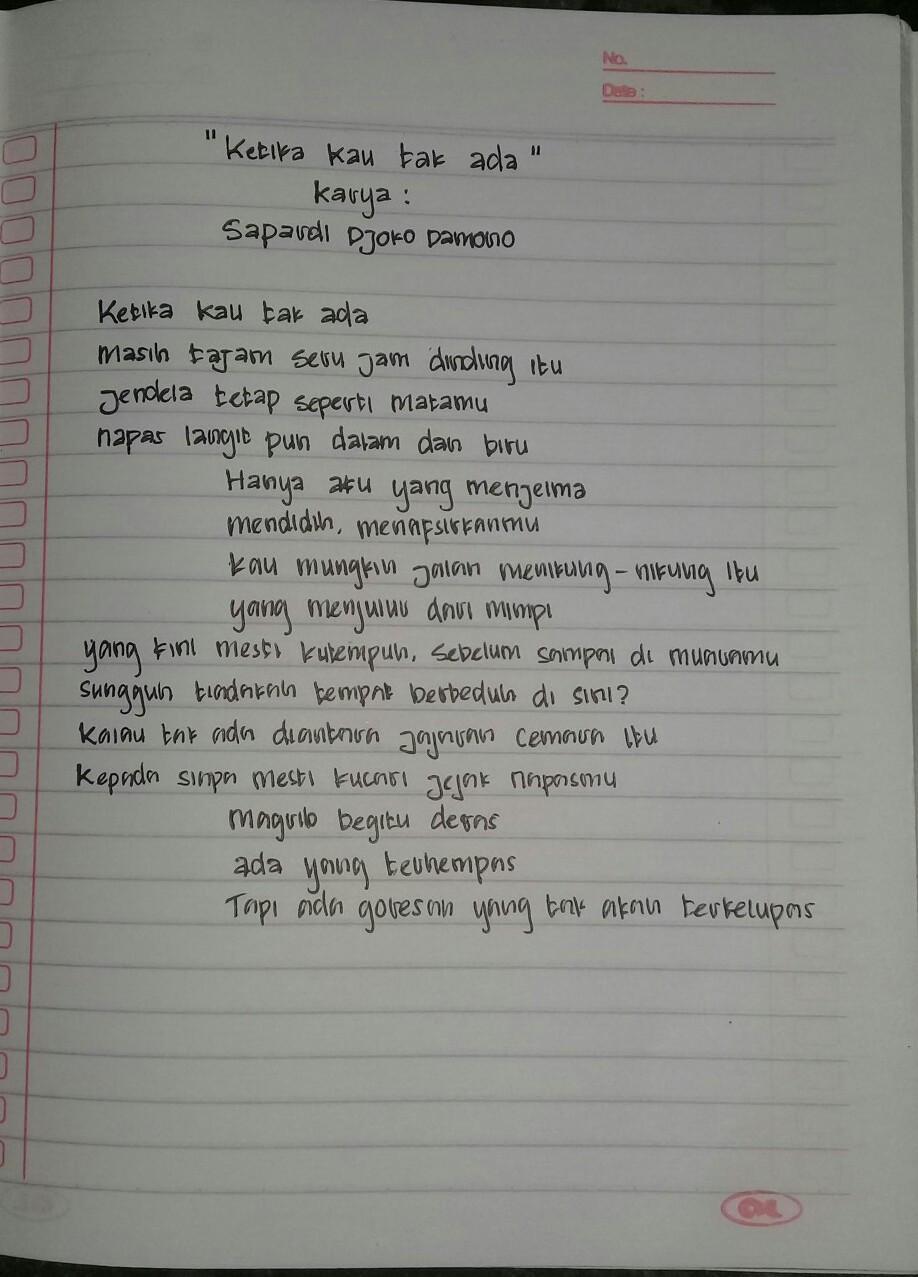 No.
Date:
"Ketika kau tak ada"
karya :
Sapardi Djoko Damono
Ketika kau tak ada
masih tajam seru jam dinding itu
jendela tetap seperti matamu
napas langit pun dalam dan biru
Hanya aku yang menjelma
mendidih, menafsirkanmu
kau mungkin jalan menikung-nikung itu
yang menjulur dari mimpi
yang kini mesti kutempuh, sebelum sampai di muaramu
sungguh tiadakah tempat berteduh di sini?
kalau tak ada diantara jajaran cemara itu
kepada siapa mesti kucari jejak napasmu
magrib begitu deras
ada yang terhempas
Tapi ada goresan yang tak akan terkelupas